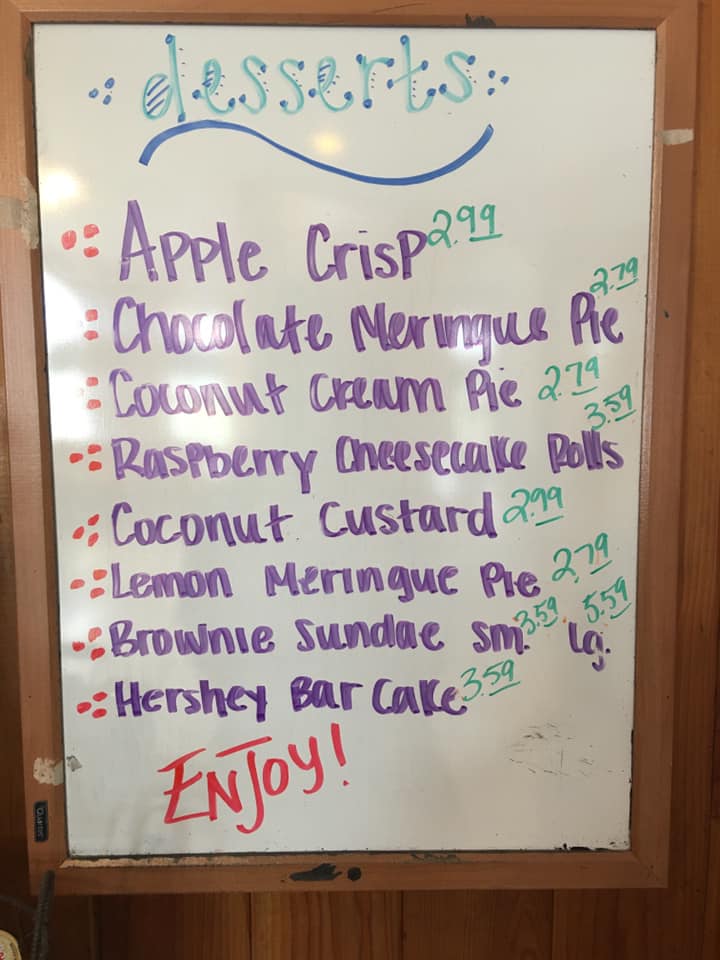 desserts
Apple Crisp 2.99
Chocolate Meringue Pie 2.79
Coconut Cream Pie 2.79
Raspberry Cheesecake Rolls 3.59
Coconut Custard 2.99
Lemon Meringue Pie 2.79
Brownie Sundae sm. 3.59 lg. 5.59
Hershey Bar Cake 3.59
ENJOY!
Quartet